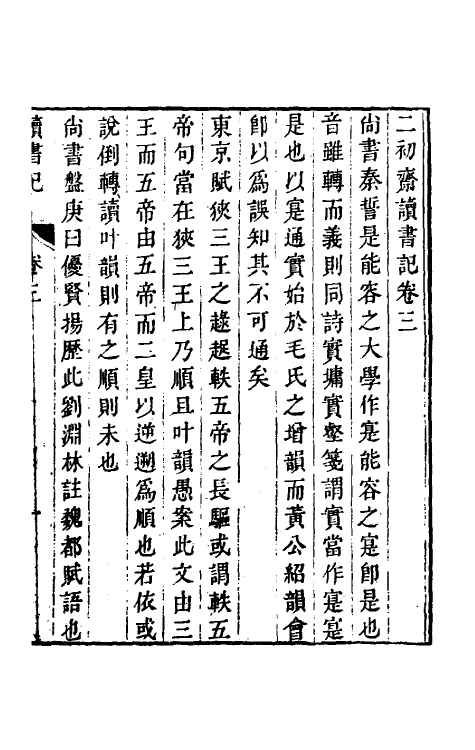 二初齋讀書記卷三
尙書秦誓是能容之大學作寔能容之寔卽是也
音雖轉而義則同詩實墉實壑箋謂實當作寔寔
是也以寔通實始於毛氏之增韻而黃公紹韻會
卽以爲誤知其不可通矣
東京賦狹三王之趢趗軼五帝之長驅或謂軼五
帝句當在狹三王上乃順且叶韻愚案此文由三
王而五帝由五帝而二皇以逆遡爲順也若依或
說倒轉讀叶韻則有之順則未也
尙書盤庚曰優賢揚歷此劉淵林註魏都賦語也
讀書記 卷三